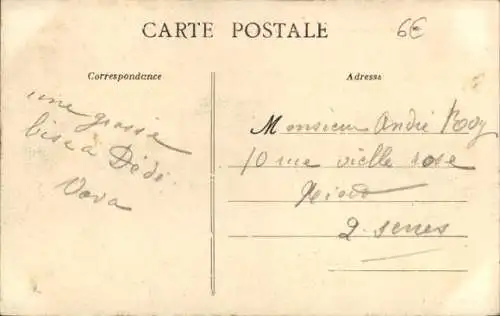 CARTE POSTALE
6€
Correspondance
Adresse
une grosse
bise à Dédé
Vova
Monsieur André
10 rue vielle rose
Niort
2. Sevres